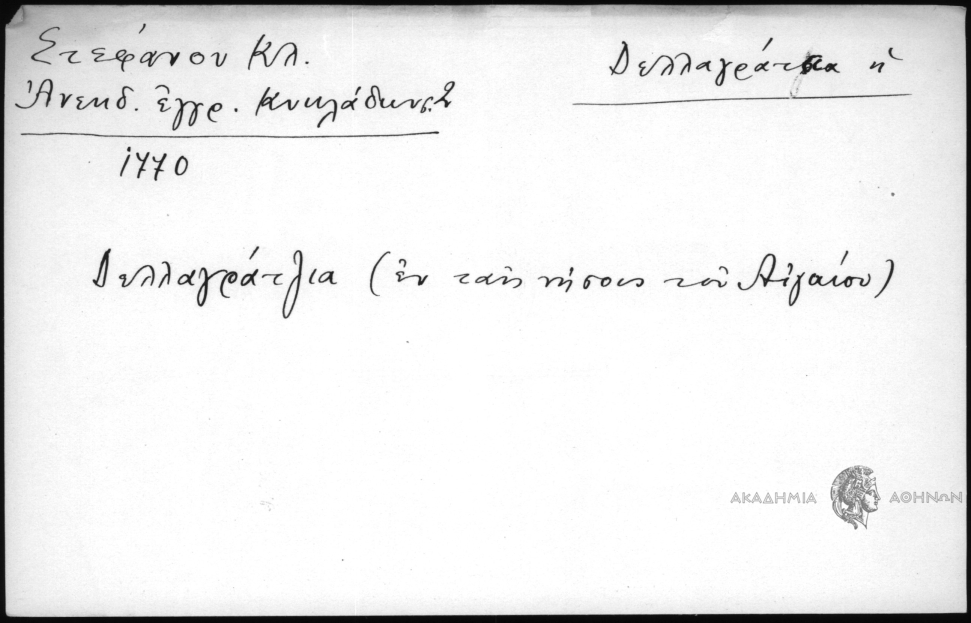 Στεφάνου Κλ.
Ἀνεκδ. ἔγγρ. Κυκλάδων σ. 2
1770
Δελλαγράτσια ἡ
Δελλαγράτζια (ἐν ταῖς νήσοις τοῦ Αἰγαίου)
ΑΚΑΔΗΜΙΑ ΑΘΗΝΩΝ